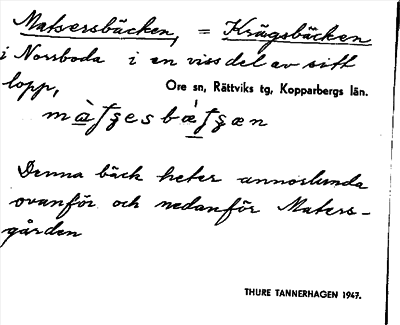 Matsersbäcken, = Krägsbäcken
i Norrboda i en viss del av sitt
lopp,
Ore sn, Rättviks tg, Kopparbergs län.
Denna bäck heter annorlunda
ovanför och nedanför Maters-
gården
THURE TANNERHAGEN 1947.